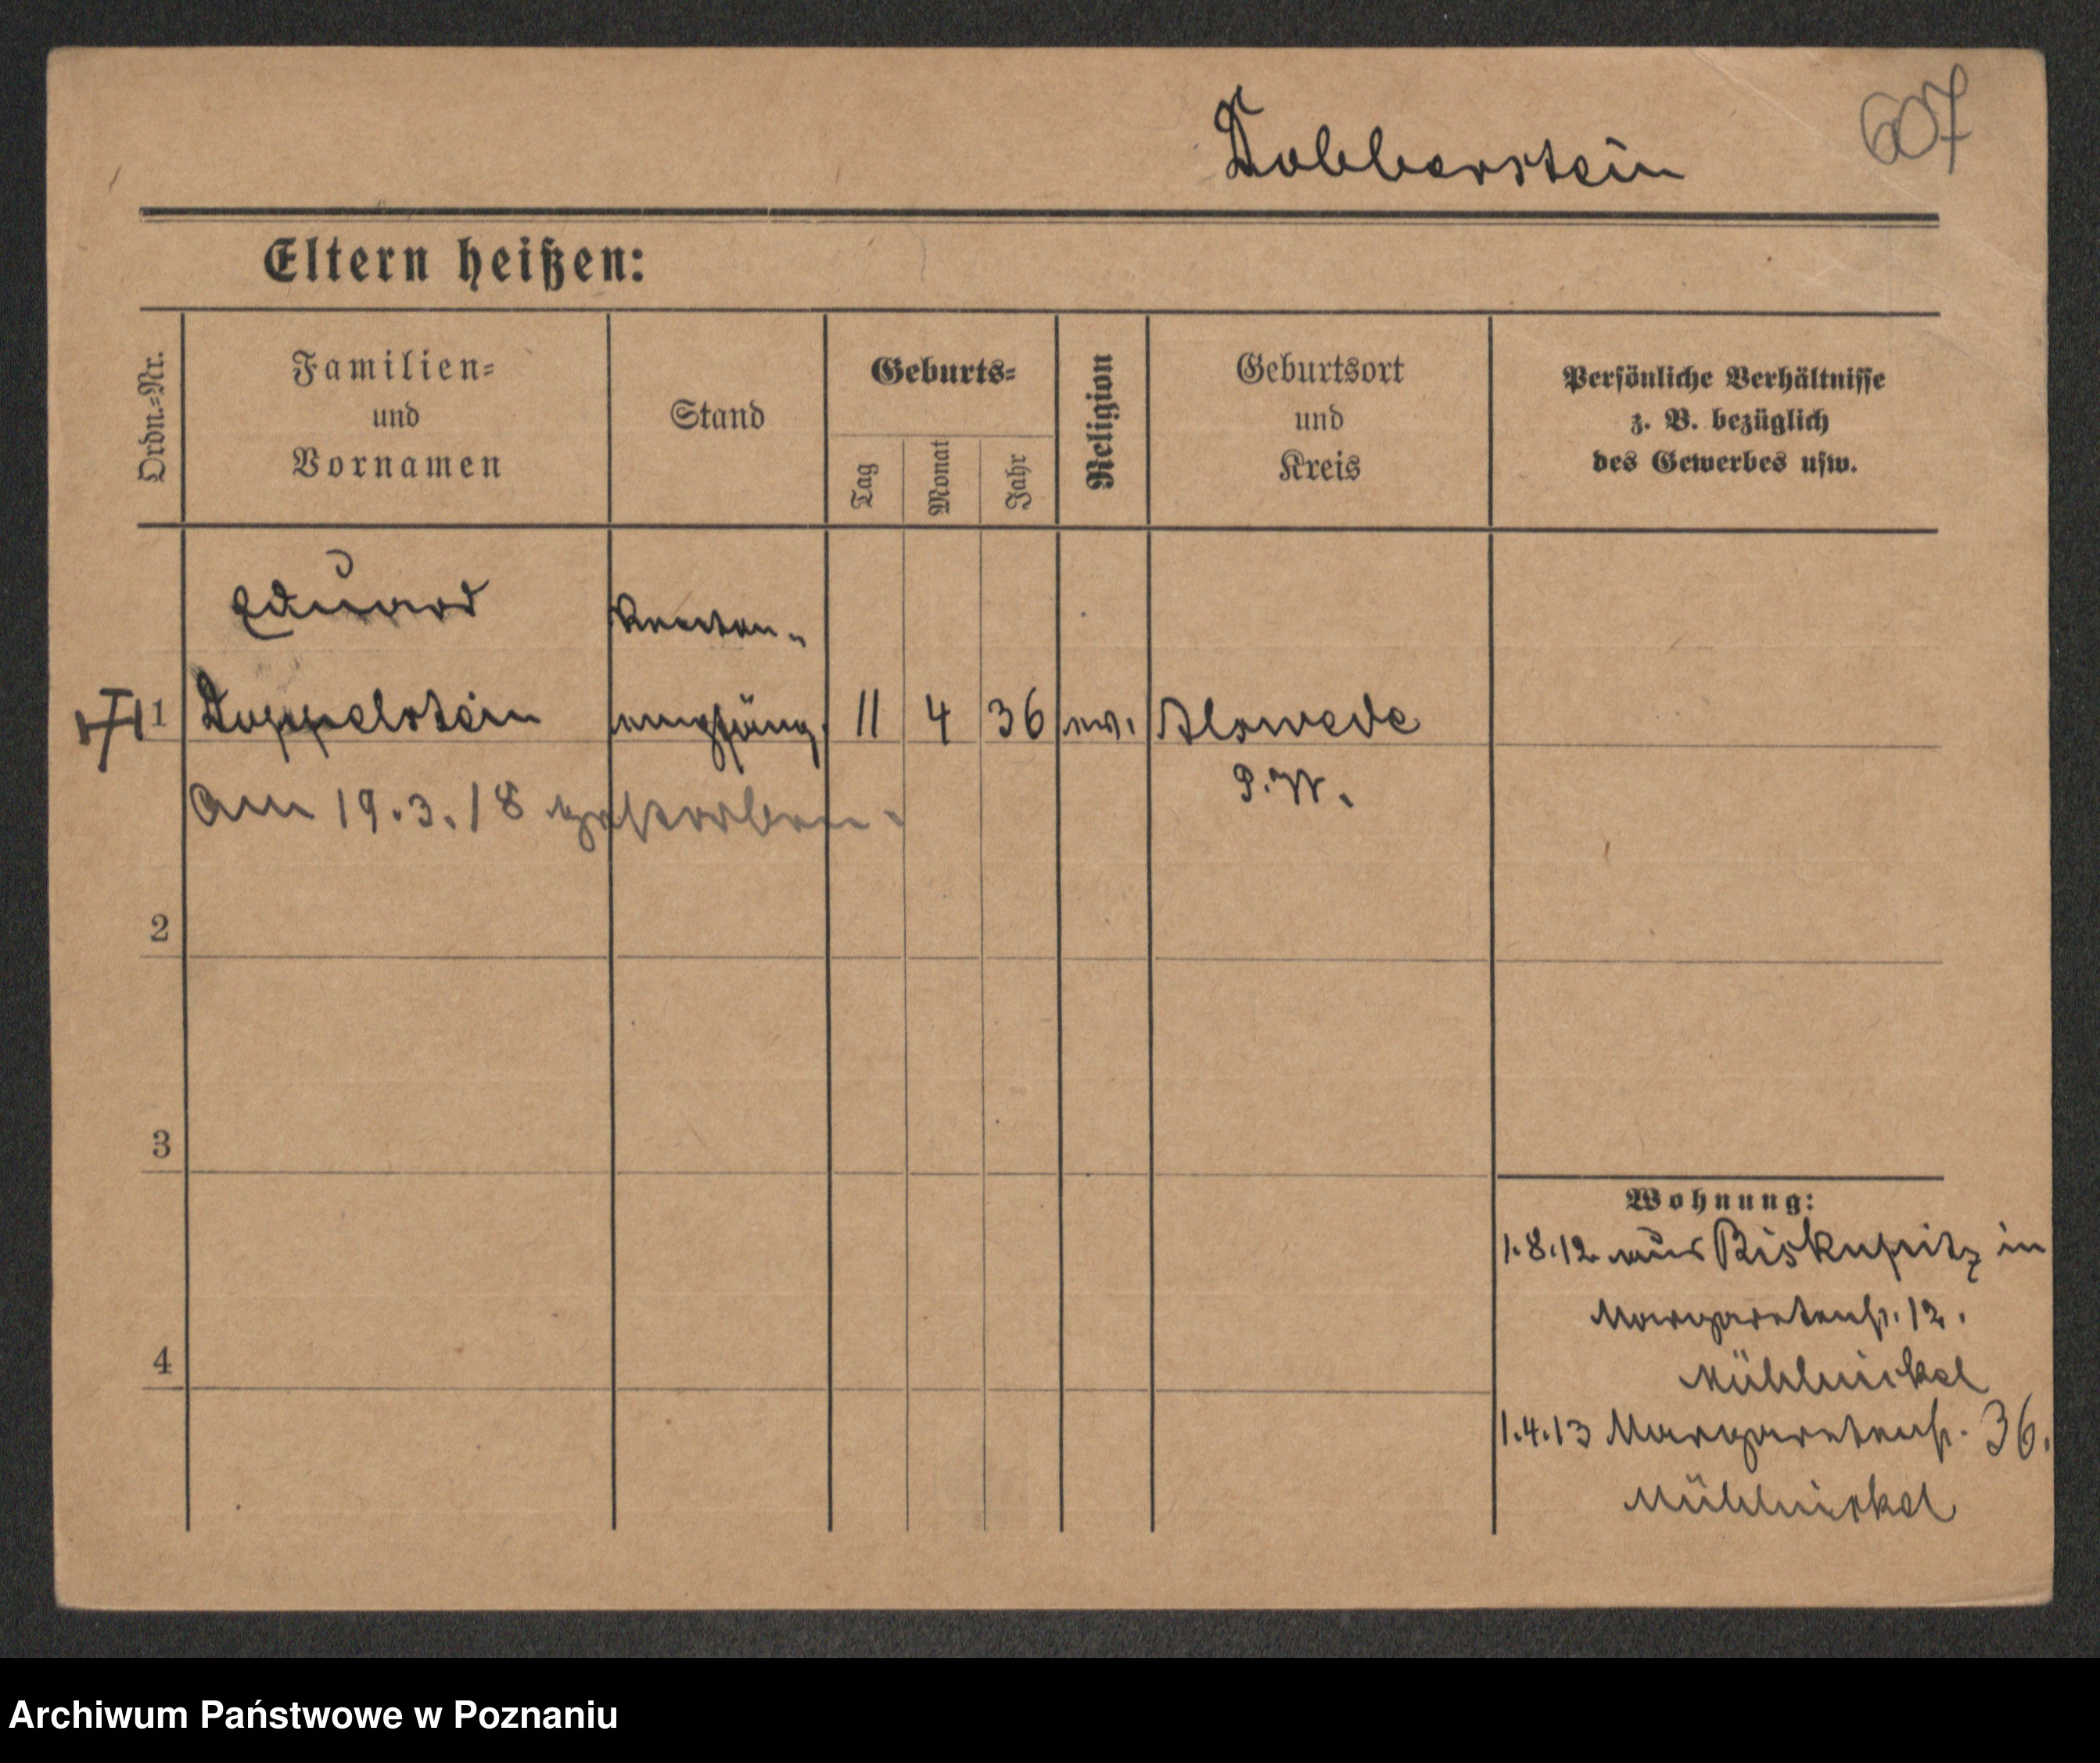 607
Dobberstein
Eltern heißen:
Ordn.-Nr.
Familien-
und
Vornamen
Stand
Geburts-
Tag
Monat
Jahr
Religion
Geburtsort
und
Kreis
Persönliche Verhältnisse
z. B. bezüglich
des Gewerbes usw.
Eduard
Renten-
1 Doppelstein empfäng. 11 4 36 ev.
P. W.
am 19.3.18 gestorben.
2
3
4
Wohnung:
1.8.12 aus Biskupitz in
Margaretenstr. 12.
Mühlnickel
1.4.13 Margaretenstr. 36.
Mühlnickel
Archiwum Państwowe w Poznaniu